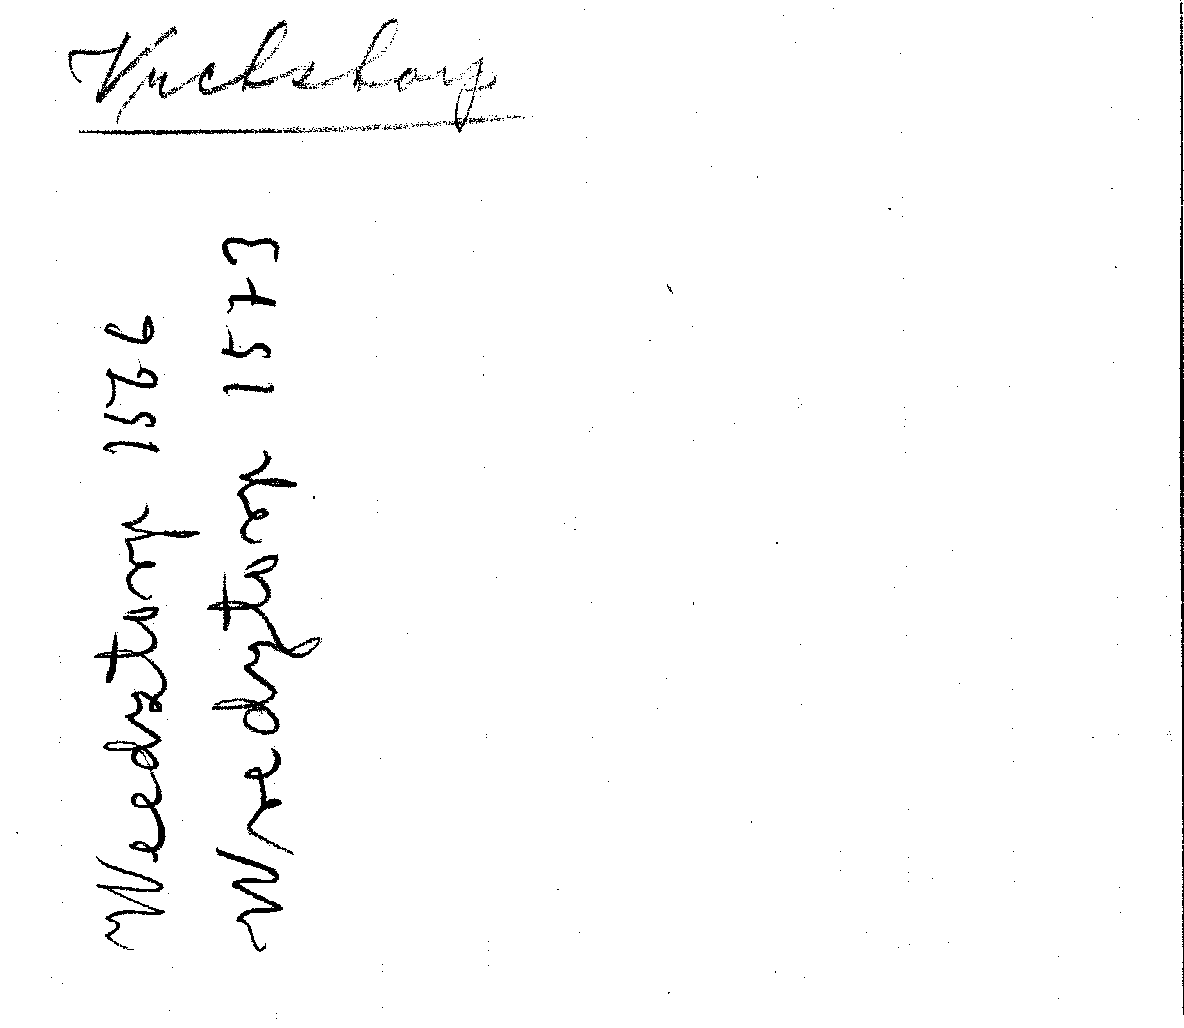 Vredstorp
Weedztorp 1566
Wredztorp 1573